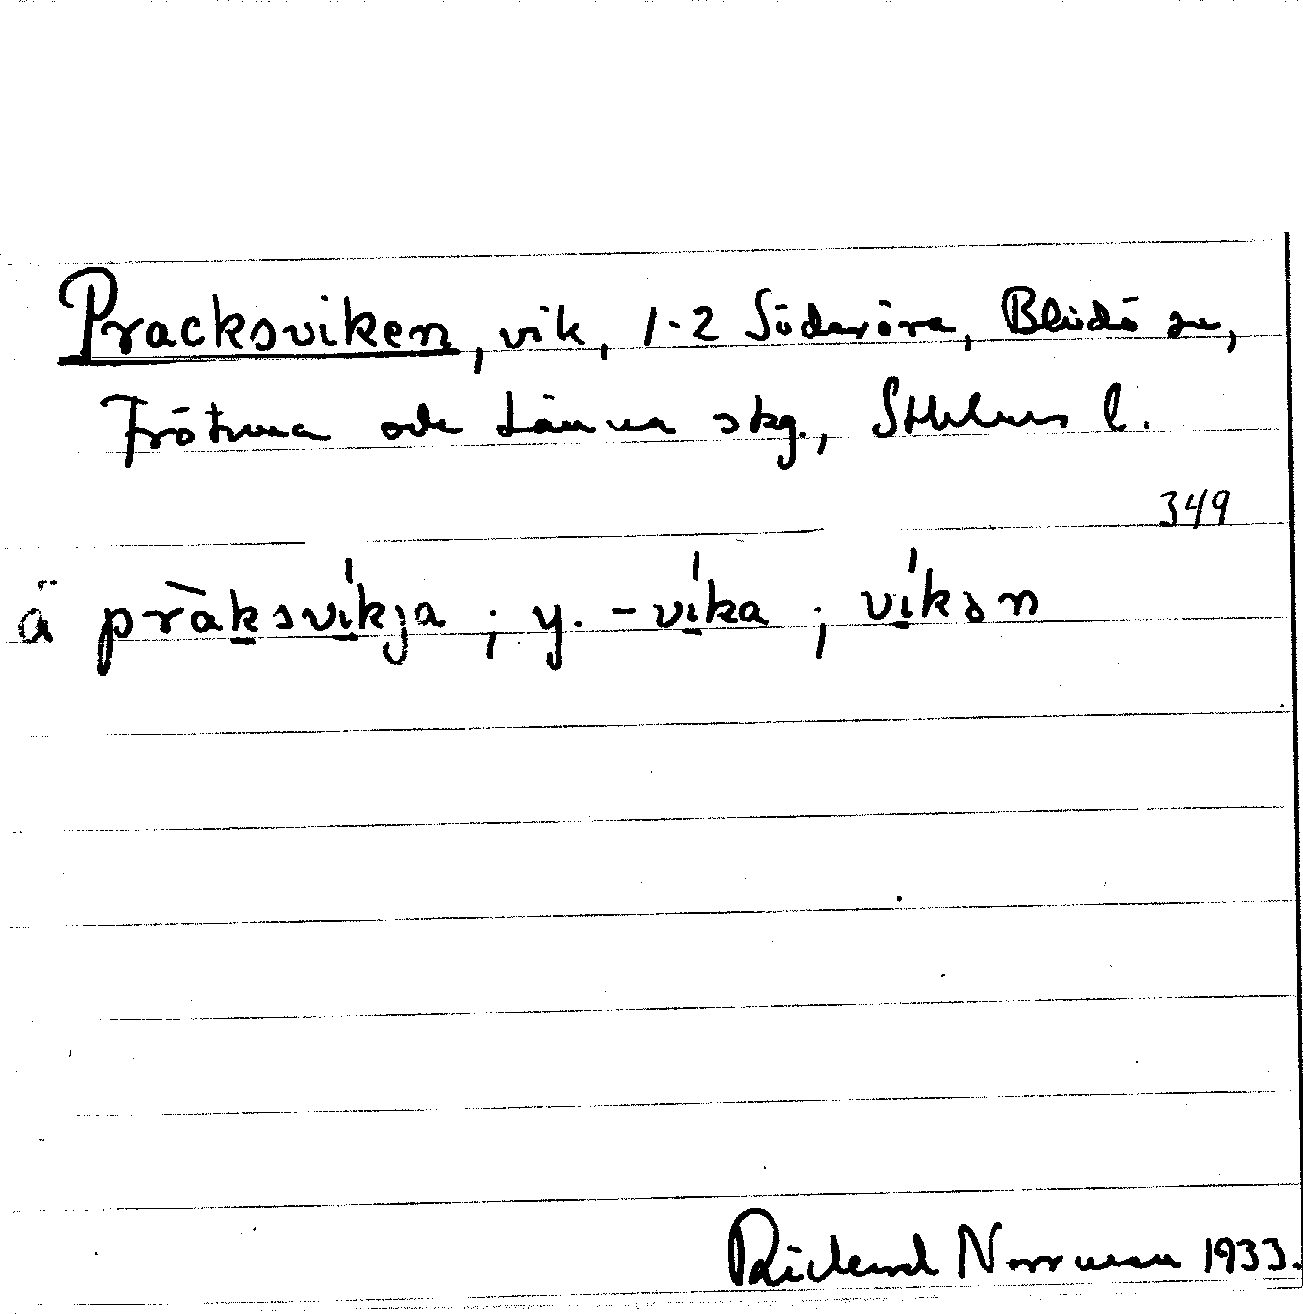 Pracksviken, vik, 1-2 Söderöra, Blidö sn,
Frötuna och Länna skg., Sthlms l.
349
ä pràksvikja ; y. -vika ; vikən
Rickard Norrman 1933.